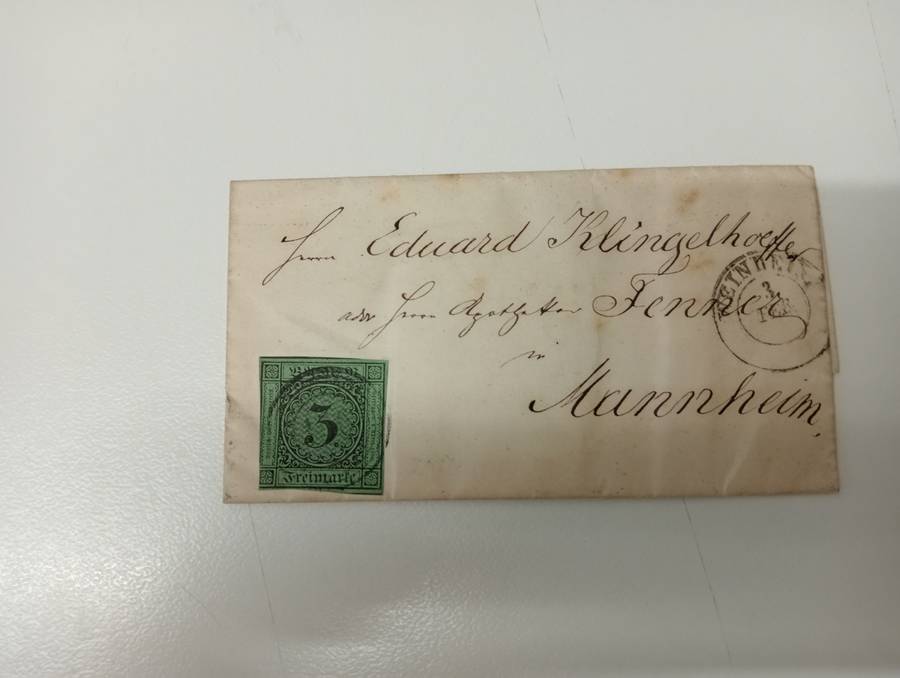 Herrn Eduard Klingelhoeffer
oder Herrn Apotheker Fenner
in
Mannheim,
3
BADEN
3
Freimarke